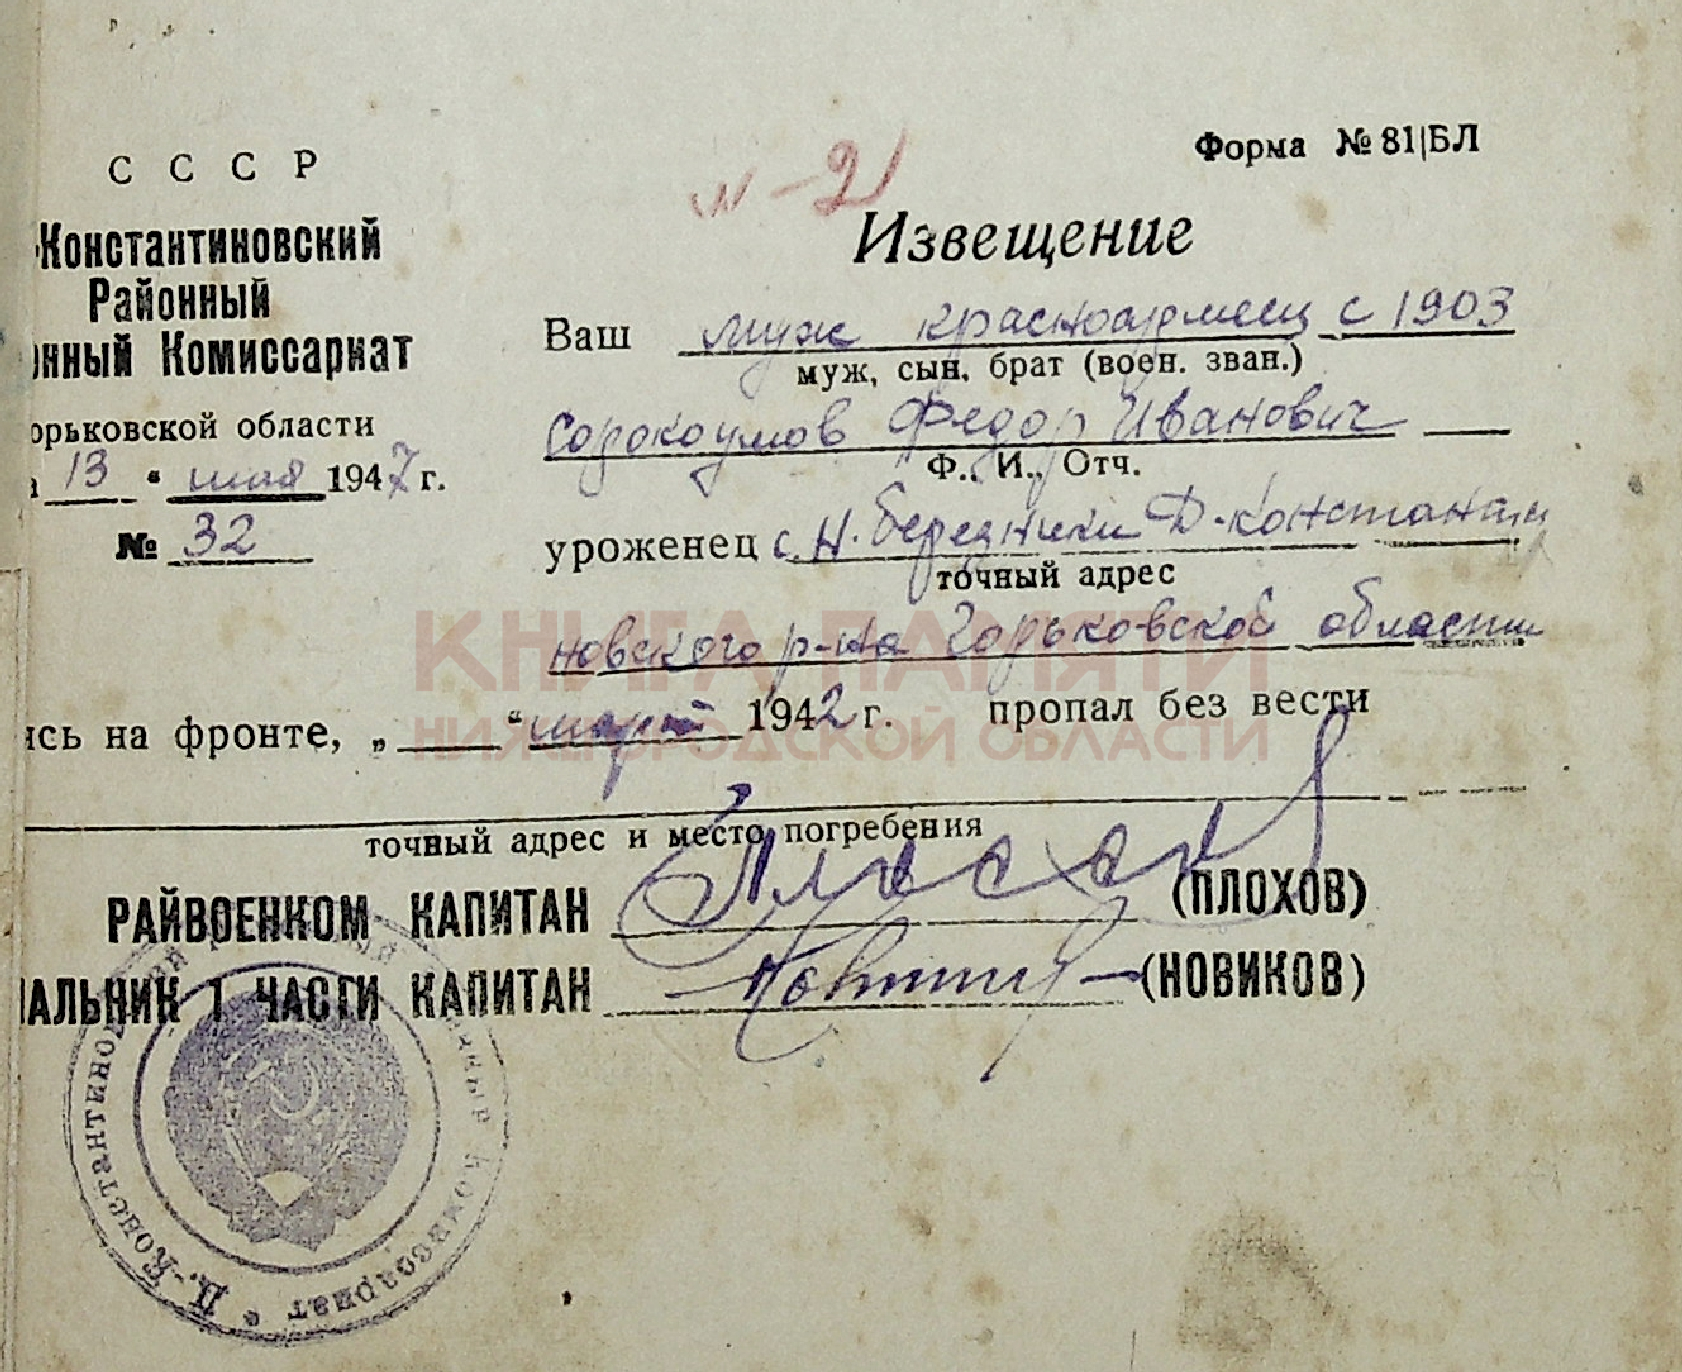 СССР
Форма № 81|БЛ
№ - 21
-Константиновский
Районный
онный Комиссариат
орьковской области
13 " мая 1947 г.
№ 32
Извещение
Ваш муж красноармеец с 1903
муж, сын, брат (воен. зван.)
Сорокоумов Федор Иванович
Ф., И., Отч.
уроженец с. Н. Березники Д-Константи
точный адрес
новского р-на Горьковской области
ись на фронте, „ “ март 1942 г. пропал без вести
точный адрес и место погребения
РАЙВОЕНКОМ КАПИТАН Плохов (ПЛОХОВ)
ЧАЛЬНИК 1 ЧАСТИ КАПИТАН (НОВИКОВ)
Д.-Константиновский Комиссариат
КНИГА ПАМЯТИ
НИЖЕГОРОДСКОЙ ОБЛАСТИ